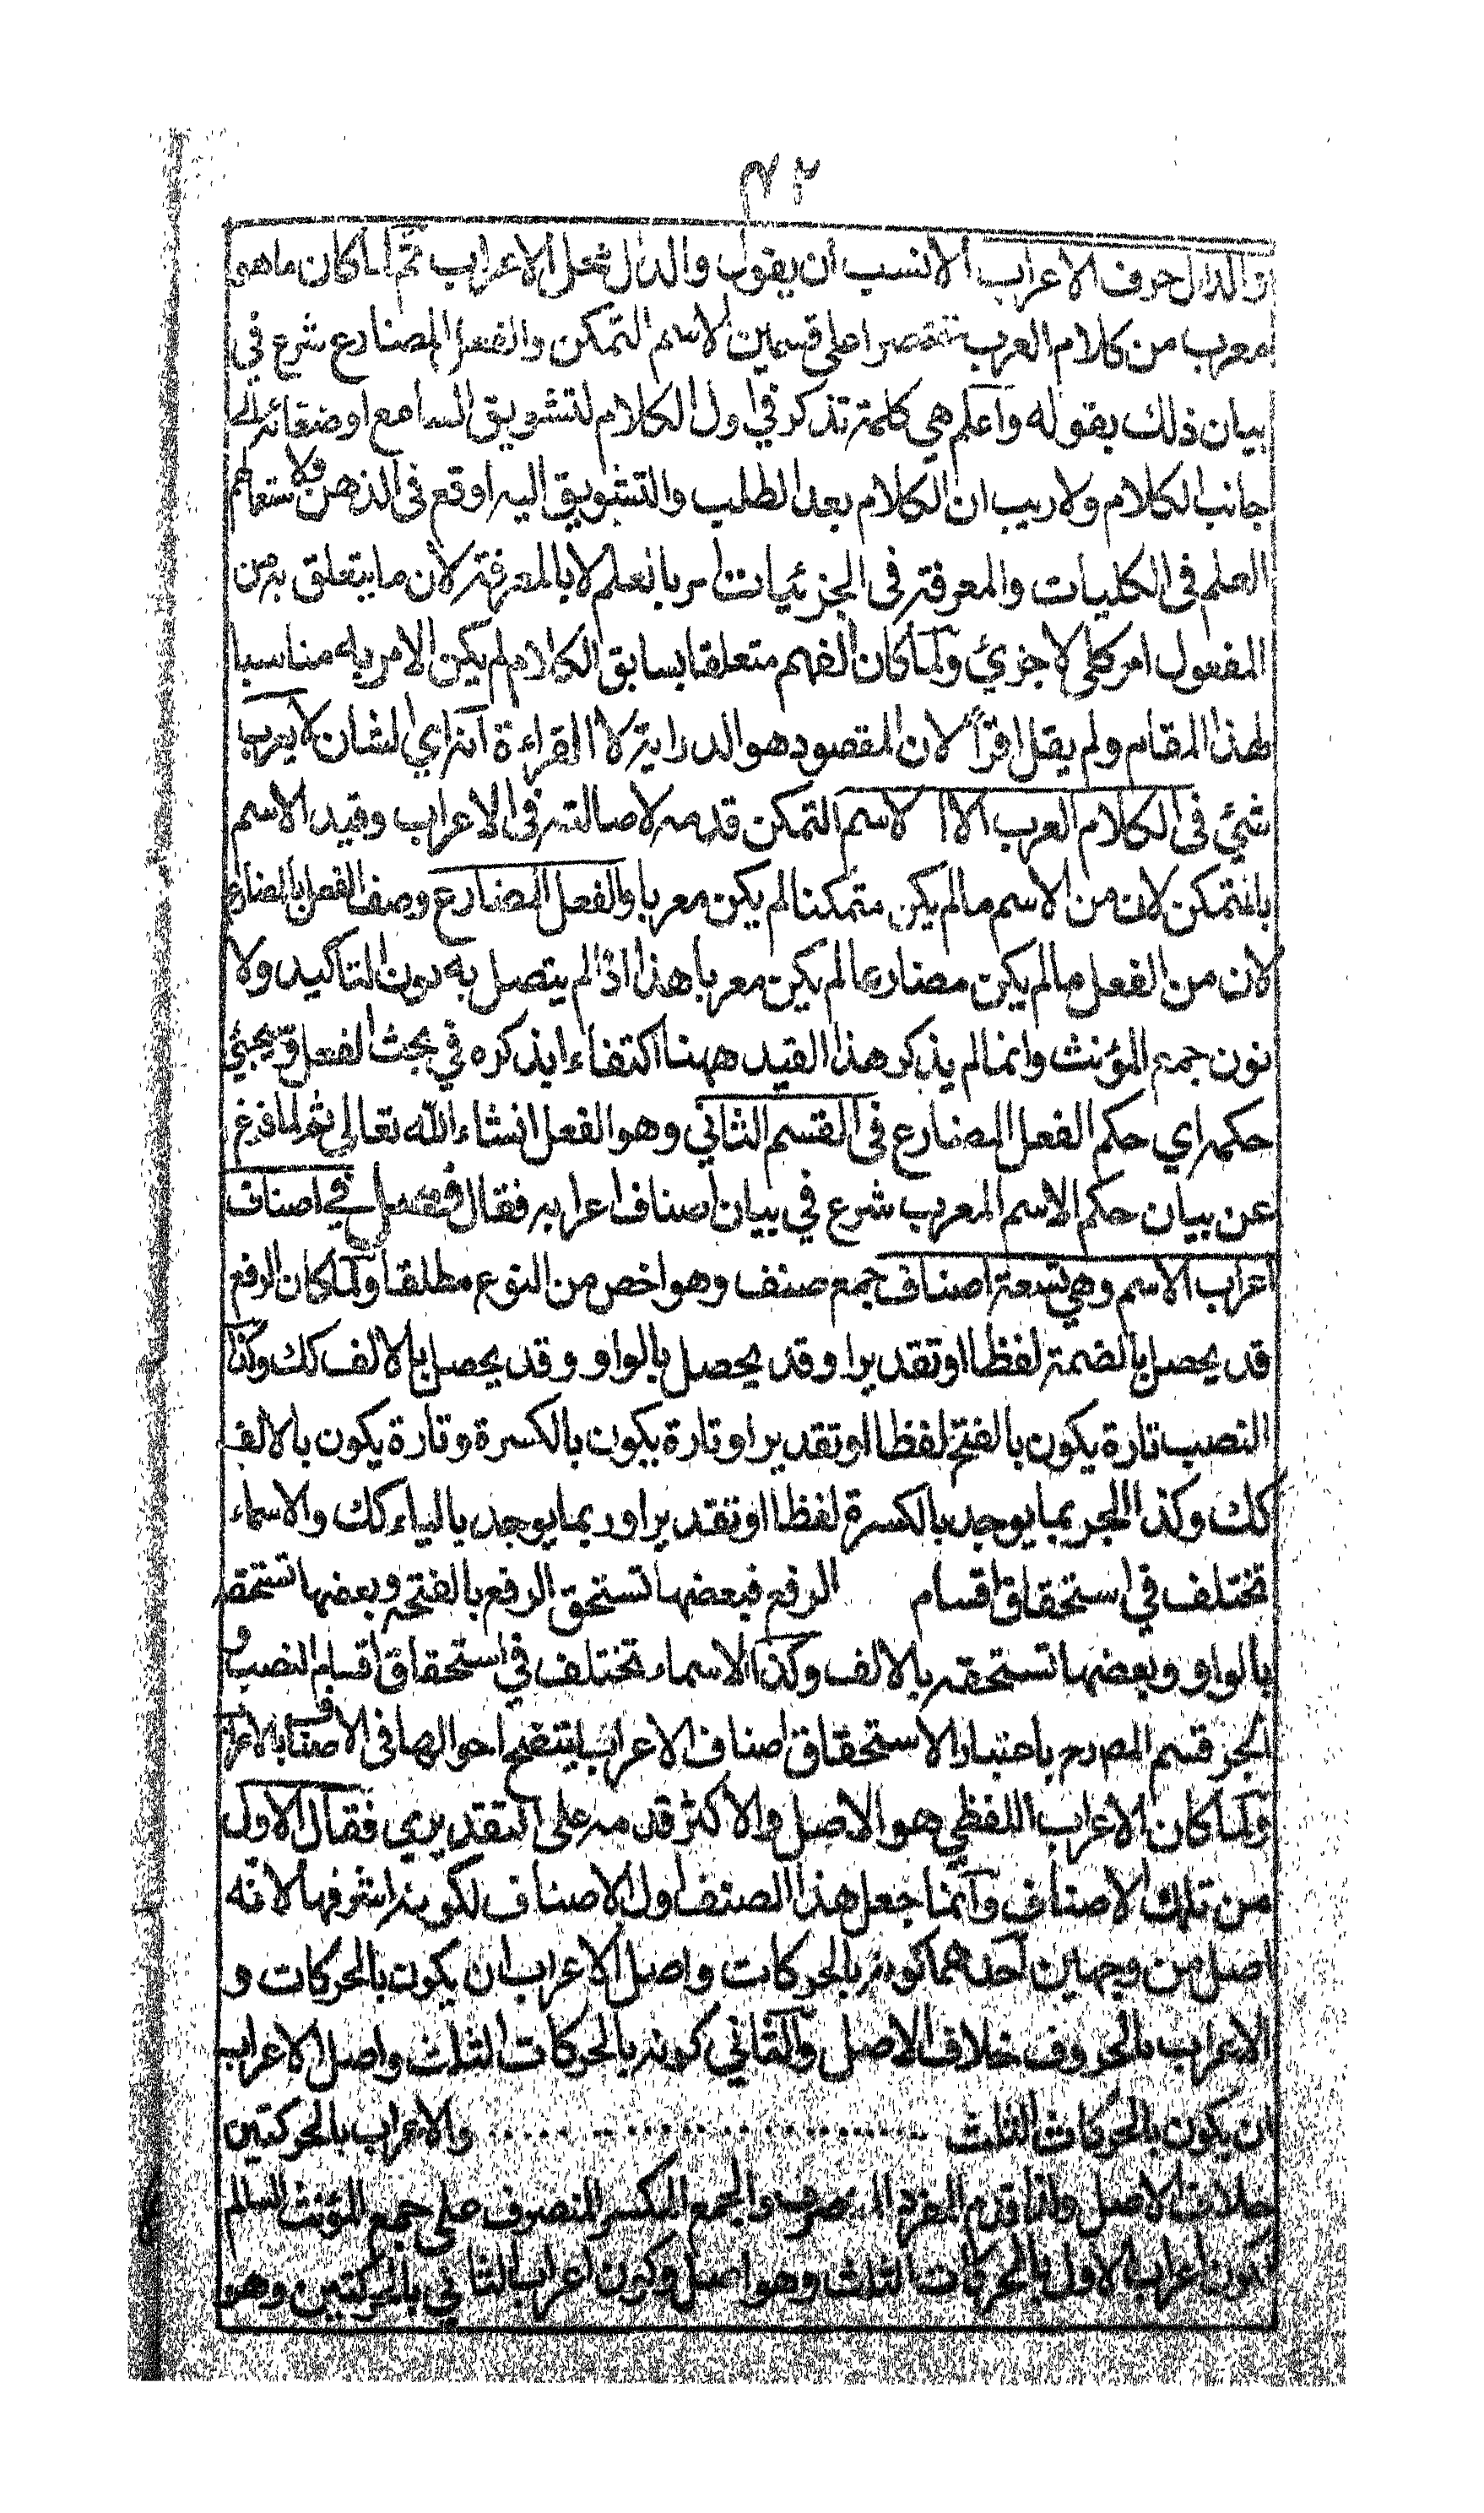 ٤٢
والدال حرف الاعراب الانسب ان يقول والدال محل الاعراب ثم لما كان ما هو
معرب من كلام العرب منحصرا على قسمين الاسم المتمكن والفعل المضارع شرع في
بيان ذلك بقوله واعلم هي كلمة تذكر في اول الكلام لتشويق السامع او ضعائه الى
جانب الكلام ولا ريب ان الكلام بعد الطلب والتشويق اليه اوقع في الذهن ولاستعمالهم
العلم في الكليات والمعرفة في الجزئيات امر بالعلم لا بالمعرفة لان ما يتعلق به من
المفعول امر كلي لا جزئي ولما كان الفهم متعلقا بسابق الكلام لم يكن الامر به مناسبا
لهذا المقام ولم يقل اقرأ لان المقصود هو الدراية لا القراءة انه اي الشان لا يعرب
شئ في الكلام العرب الا الاسم المتمكن قدمه لاصالته في الاعراب وقيد الاسم
بالمتمكن لان من الاسم ما لم يكن متمكنا لم يكن معربا والفعل المضارع وصف الفعل بالمضارع
لان من الفعل ما لم يكن مضارعا لم يكن معربا هذا اذا لم يتصل به نون التاكيد ولا
نون جمع المؤنث وانما لم يذكر هذا القيد ههنا اكتفاء ايذكره في بحث الفعل وسيجئ
حكمه اي حكم الفعل المضارع في القسم الثاني وهو الفعل انشاء الله تعالى ثم لما فرغ
عن بيان حكم الاسم المعرب شرع في بيان اصناف اعرابه فقال فصل في اصناف
اعراب الاسم وهي تسعة اصناف جمع صنف وهو اخص من النوع مطلقا ولما كان الرفع
قد يحصل بالضمة لفظا او تقديرا وقد يحصل بالواو وقد يحصل بالالف كك وكذا
النصب تارة يكون بالفتح لفظا او تقديرا وتارة يكون بالكسرة وتارة يكون بالالف
كك وكذا الجر بما يوجد بالكسرة لفظا او تقديرا وربما يوجد بالياء كك والاسماء
تختلف في استحقاق اقسام الرفع فبعضها تستحق الرفع بالفتحه وبعضها تستحقه
بالواو وبعضها تستحقه بالالف وكذا الاسماء تختلف في استحقاق اقسام النصب و
الجر قسم المص رح باعتبار الاستحقاق اصناف الاعراب ليتضح احوالها في الاتصاف بالاعراب
ولما كان الاعراب اللفظي هو الاصل والاكثر قدمه على التقديري فقال الاول
من تلك الاصناف وانما جعل هذا الصنف اول الاصناف لكونه اشرفها لانه
اصل من وجهين احدهما كونه بالحركات واصل الاعراب ان يكون بالحركات و
الاعراب بالحروف خلاف الاصل والثاني كونه بالحركات الثلث واصل الاعراب
ان يكون بالحركات الثلث ........ والاعراب بالحركتين
خلاف الاصل وانما قدم المفرد المنصرف والجمع المكسر المنصرف على جمع المؤنث السالم
لكون اعراب الاول بالحركات الثلث وهو اصل وكون اعراب الثاني بالحركتين وهو